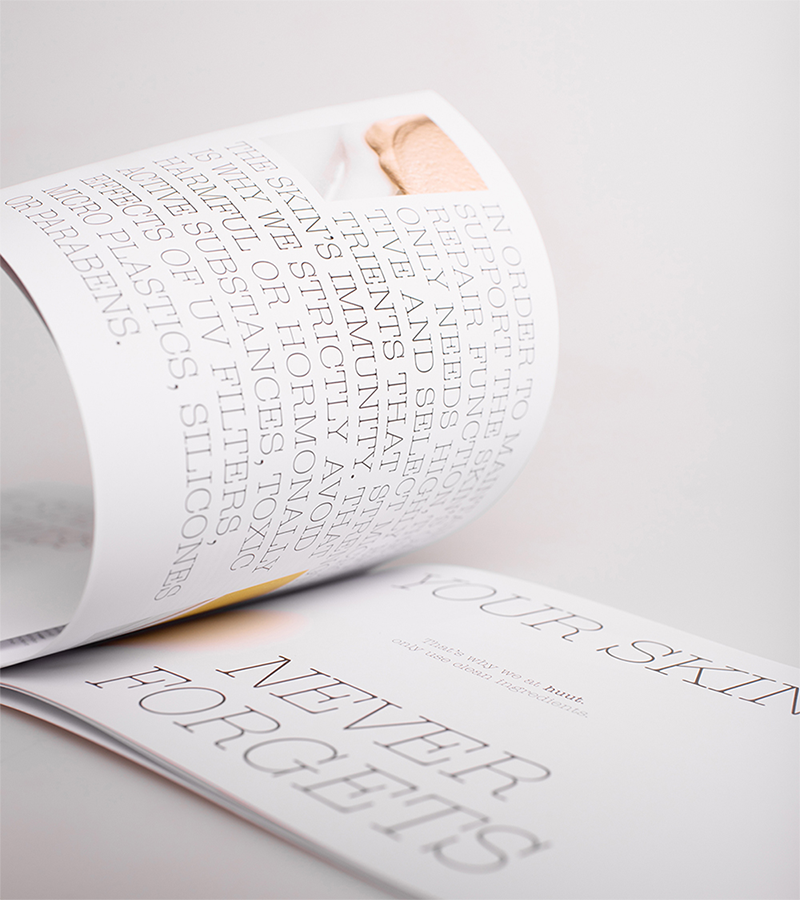 IN ORDER TO
SUPPORT THE
REPAIR
ONLY NEEDS
TIVE AND
TRIENTS THAT
THE SKIN'S IMMUNITY. THAT
IS WHY WE STRICTLY AVOID
HARMFUL OR HORMONALLY
ACTIVE SUBSTANCES, TOXIC
EFFECTS OF UV FILTERS,
MICRO PLASTICS, SILICONES
OR PARABENS.
YOUR SKIN
That's why we at buut.
only use clean ingredients.
NEVER
FORGETS